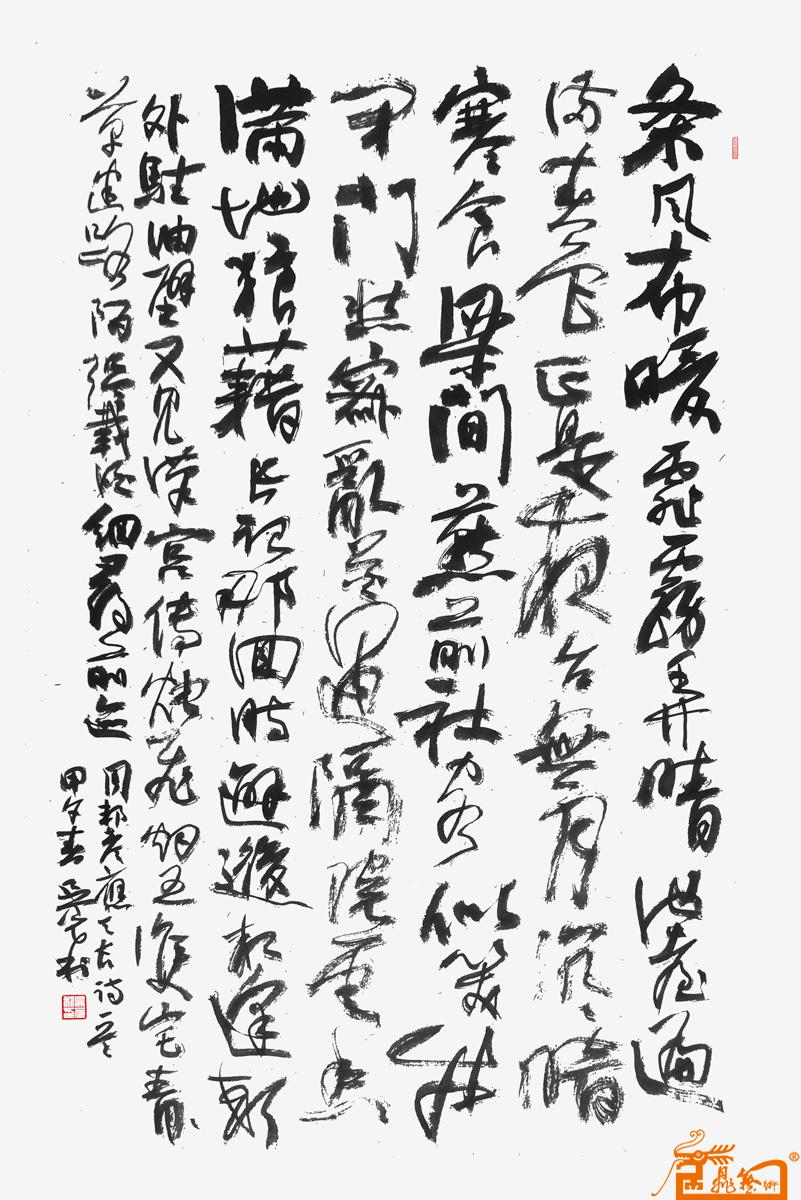 条风布暖霏霧弄晴池臺遍
满春色正是夜台無月沉沉暗
寒食梁間燕前社客似笑我
闭門愁寂亂花過隔院芸香
满地狼藉长記那回时邂逅相逢郊
外駐油壁又见漢宫傳烛飛烟五侯宅青
草迷路陌强載酒细尋前迹
周邦彦應天长诗一首
甲午春